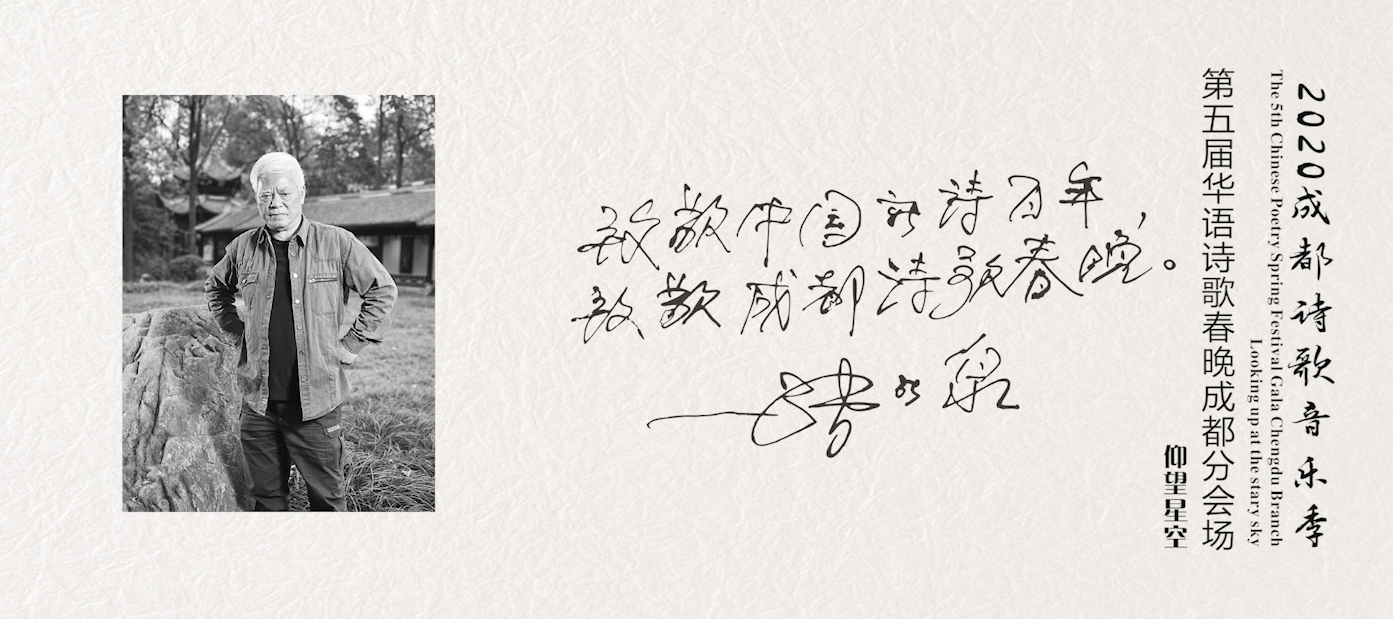 致敬中国新诗百年，
致敬成都诗歌春晚。
2020成都诗歌音乐季
The 5th Chinese Poetry Spring Festival Gala Chengdu Branch
Looking up at the stary sky
第五届华语诗歌春晚成都分会场
仰望星空